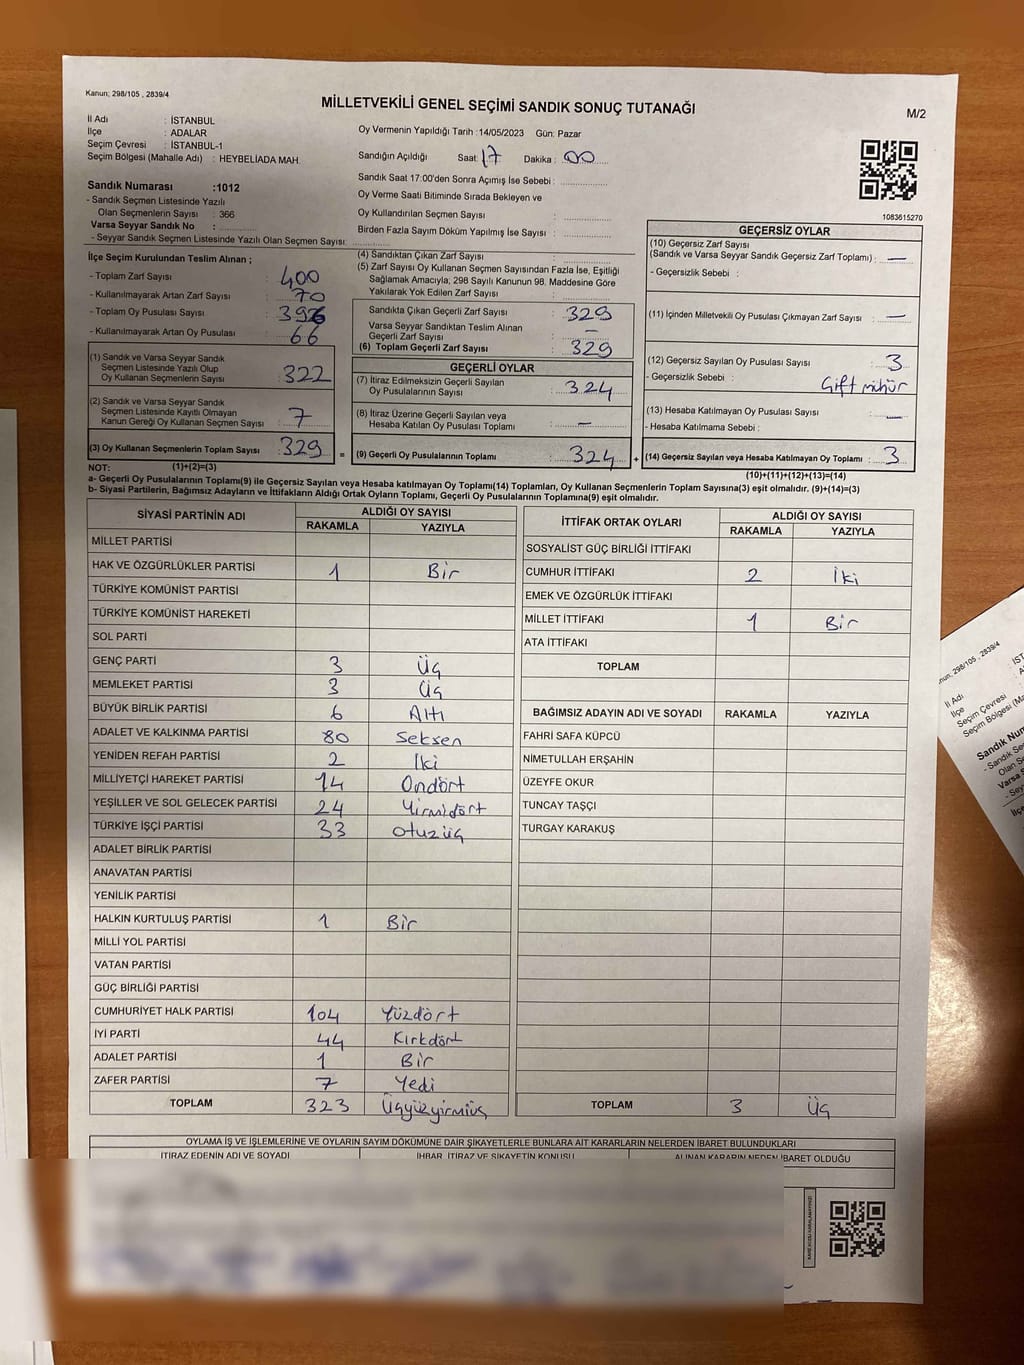 Kanun; 298/105 , 2839/4
MİLLETVEKİLİ GENEL SEÇİMİ SANDIK SONUÇ TUTANAĞI
M/2
İl Adı : İSTANBUL
İlçe : ADALAR
Seçim Çevresi : İSTANBUL-1
Seçim Bölgesi (Mahalle Adı) : HEYBELİADA MAH.
Oy Vermenin Yapıldığı Tarih :14/05/2023 Gün: Pazar
Sandığın Açıldığı Saat: 17 Dakika : 00
Sandık Saat 17:00'den Sonra Açımış İse Sebebi :
Oy Verme Saati Bitiminde Sırada Bekleyen ve
Oy Kullandırılan Seçmen Sayısı :
Birden Fazla Sayım Döküm Yapılmış İse Sayısı :
1083615270
Sandık Numarası :1012
- Sandık Seçmen Listesinde Yazılı
Olan Seçmenlerin Sayısı : 366
Varsa Seyyar Sandık No :
- Seyyar Sandık Seçmen Listesinde Yazılı Olan Seçmen Sayısı:
İlçe Seçim Kurulundan Teslim Alınan ;
- Toplam Zarf Sayısı : 400
- Kullanılmayarak Artan Zarf Sayısı : 70
- Toplam Oy Pusulası Sayısı : 396
- Kullanılmayarak Artan Oy Pusulası : 66
(1) Sandık ve Varsa Seyyar Sandık
Seçmen Listesinde Yazılı Olup
Oy Kullanan Seçmenlerin Sayısı : 322
(2) Sandık ve Varsa Seyyar Sandık
Seçmen Listesinde Kayıtlı Olmayan
Kanun Gereği Oy Kullanan Seçmen Sayısı : 7
(3) Oy Kullanan Seçmenlerin Toplam Sayısı : 329
(4) Sandıktan Çıkan Zarf Sayısı :
(5) Zarf Sayısı Oy Kullanan Seçmen Sayısından Fazla İse, Eşitliği
Sağlamak Amacıyla, 298 Sayılı Kanunun 98. Maddesine Göre
Yakılarak Yok Edilen Zarf Sayısı :
Sandıkta Çıkan Geçerli Zarf Sayısı : 329
Varsa Seyyar Sandıktan Teslim Alınan
Geçerli Zarf Sayısı : —
(6) Toplam Geçerli Zarf Sayısı : 329
GEÇERLİ OYLAR
(7) İtiraz Edilmeksizin Geçerli Sayılan
Oy Pusulalarının Sayısı : 324
(8) İtiraz Üzerine Geçerli Sayılan veya
Hesaba Katılan Oy Pusulası Toplamı : —
= (9) Geçerli Oy Pusulalarının Toplamı : 324
GEÇERSİZ OYLAR
(10) Geçersiz Zarf Sayısı
(Sandık ve Varsa Seyyar Sandık Geçersiz Zarf Toplamı) : —
- Geçersizlik Sebebi :
(11) İçinden Milletvekili Oy Pusulası Çıkmayan Zarf Sayısı : —
(12) Geçersiz Sayılan Oy Pusulası Sayısı : 3
- Geçersizlik Sebebi : Çift mühür
(13) Hesaba Katılmayan Oy Pusulası Sayısı : —
- Hesaba Katılmama Sebebi :
+ (14) Geçersiz Sayılan veya Hesaba Katılmayan Oy Toplamı : 3
NOT: (1)+(2)=(3)
(10)+(11)+(12)+(13)=(14)
a- Geçerli Oy Pusulalarının Toplamı(9) ile Geçersiz Sayılan veya Hesaba Katılmayan Oy Toplamı(14) Toplamları, Oy Kullanan Seçmenlerin Toplam Sayısına(3) eşit olmalıdır. (9)+(14)=(3)
b- Siyasi Partilerin, Bağımsız Adayların ve İttifakların Aldığı Ortak Oyların Toplamı, Geçerli Oy Pusulalarının Toplamına(9) eşit olmalıdır.
SİYASİ PARTİNİN ADI ALDIĞI OY SAYISI
RAKAMLA YAZIYLA
MİLLET PARTİSİ
HAK VE ÖZGÜRLÜKLER PARTİSİ 1 Bir
TÜRKİYE KOMÜNİST PARTİSİ
TÜRKİYE KOMÜNİST HAREKETİ
SOL PARTİ
GENÇ PARTİ 3 Üç
MEMLEKET PARTİSİ 3 Üç
BÜYÜK BİRLİK PARTİSİ 6 Altı
ADALET VE KALKINMA PARTİSİ 80 Seksen
YENİDEN REFAH PARTİSİ 2 İki
MİLLİYETÇİ HAREKET PARTİSİ 14 Ondört
YEŞİLLER VE SOL GELECEK PARTİSİ 24 Yirmidört
TÜRKİYE İŞÇİ PARTİSİ 33 otuzüç
ADALET BİRLİK PARTİSİ
ANAVATAN PARTİSİ
YENİLİK PARTİSİ
HALKIN KURTULUŞ PARTİSİ 1 Bir
MİLLİ YOL PARTİSİ
VATAN PARTİSİ
GÜÇ BİRLİĞİ PARTİSİ
CUMHURİYET HALK PARTİSİ 104 Yüzdört
İYİ PARTİ 44 Kırkdört
ADALET PARTİSİ 1 Bir
ZAFER PARTİSİ 7 Yedi
TOPLAM 323 Üçyüzyirmiüç
İTTİFAK ORTAK OYLARI ALDIĞI OY SAYISI
RAKAMLA YAZIYLA
SOSYALİST GÜÇ BİRLİĞİ İTTİFAKI
CUMHUR İTTİFAKI 2 İki
EMEK VE ÖZGÜRLÜK İTTİFAKI
MİLLET İTTİFAKI 1 Bir
ATA İTTİFAKI
TOPLAM
BAĞIMSIZ ADAYIN ADI VE SOYADI RAKAMLA YAZIYLA
FAHRİ SAFA KÜPCÜ
NİMETULLAH ERŞAHİN
ÜZEYFE OKUR
TUNCAY TAŞÇI
TURGAY KARAKUŞ
TOPLAM 3 Üç
OYLAMA İŞ VE İŞLEMLERİNE VE OYLARIN SAYIM DÖKÜMÜNE DAİR ŞİKAYETLERLE BUNLARA AİT KARARLARIN NELERDEN İBARET BULUNDUKLARI
İTİRAZ EDENİN ADI VE SOYADI İHBAR, İTİRAZ VE ŞİKAYETİN KONUSU ALINAN KARARIN NEDEN İBARET OLDUĞU
Kanun; 298/105 , 2839/4
İl Adı
İlçe
Seçim Çevresi